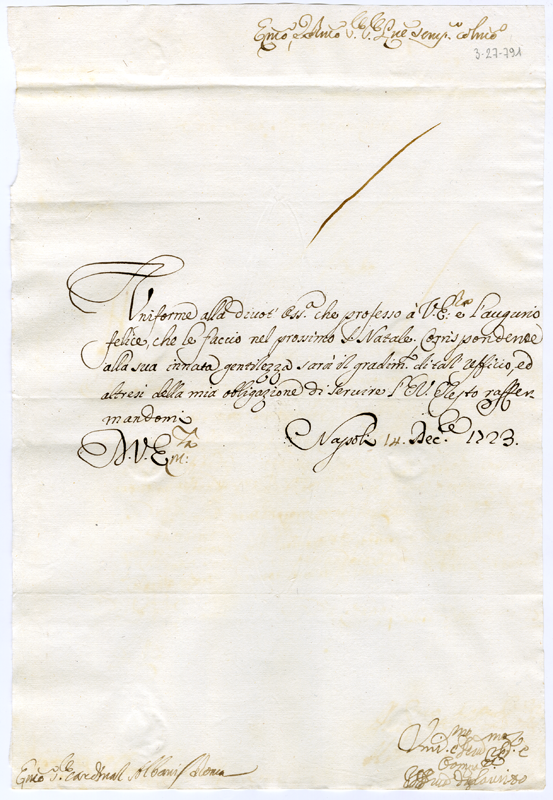 Emo, e Rmo S.re S.re Pne semp. colmo
3-27-791
Uniforme alla divot' oss.a che professo à V.E.: è l'augurio
felice, che le faccio nel prossimo S. Natale. Corrispondente
alla sua innata gentilezza sarà il gradim.to di tal' Ufficio, ed
altresi della mia obligazione di servire l'E.V. Resto raffer
mandomi
D. V. Em:za
Napoli 14. Dec.re 1723.
Emo S.r Cardinal Albani Roma